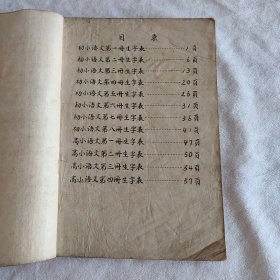 目 录
初小语文第一册生字表………1頁
初小语文第二册生字表………6頁
初小语文第三册生字表………13頁
初小语文第四册生字表………20頁
初小语文第五册生字表………26頁
初小语文第六册生字表………31頁
初小语文第七册生字表………36頁
初小语文第八册生字表………41頁
高小语文第一册生字表………47頁
高小语文第二册生字表………50頁
高小语文第三册生字表………54頁
高小语文第四册生字表………57頁